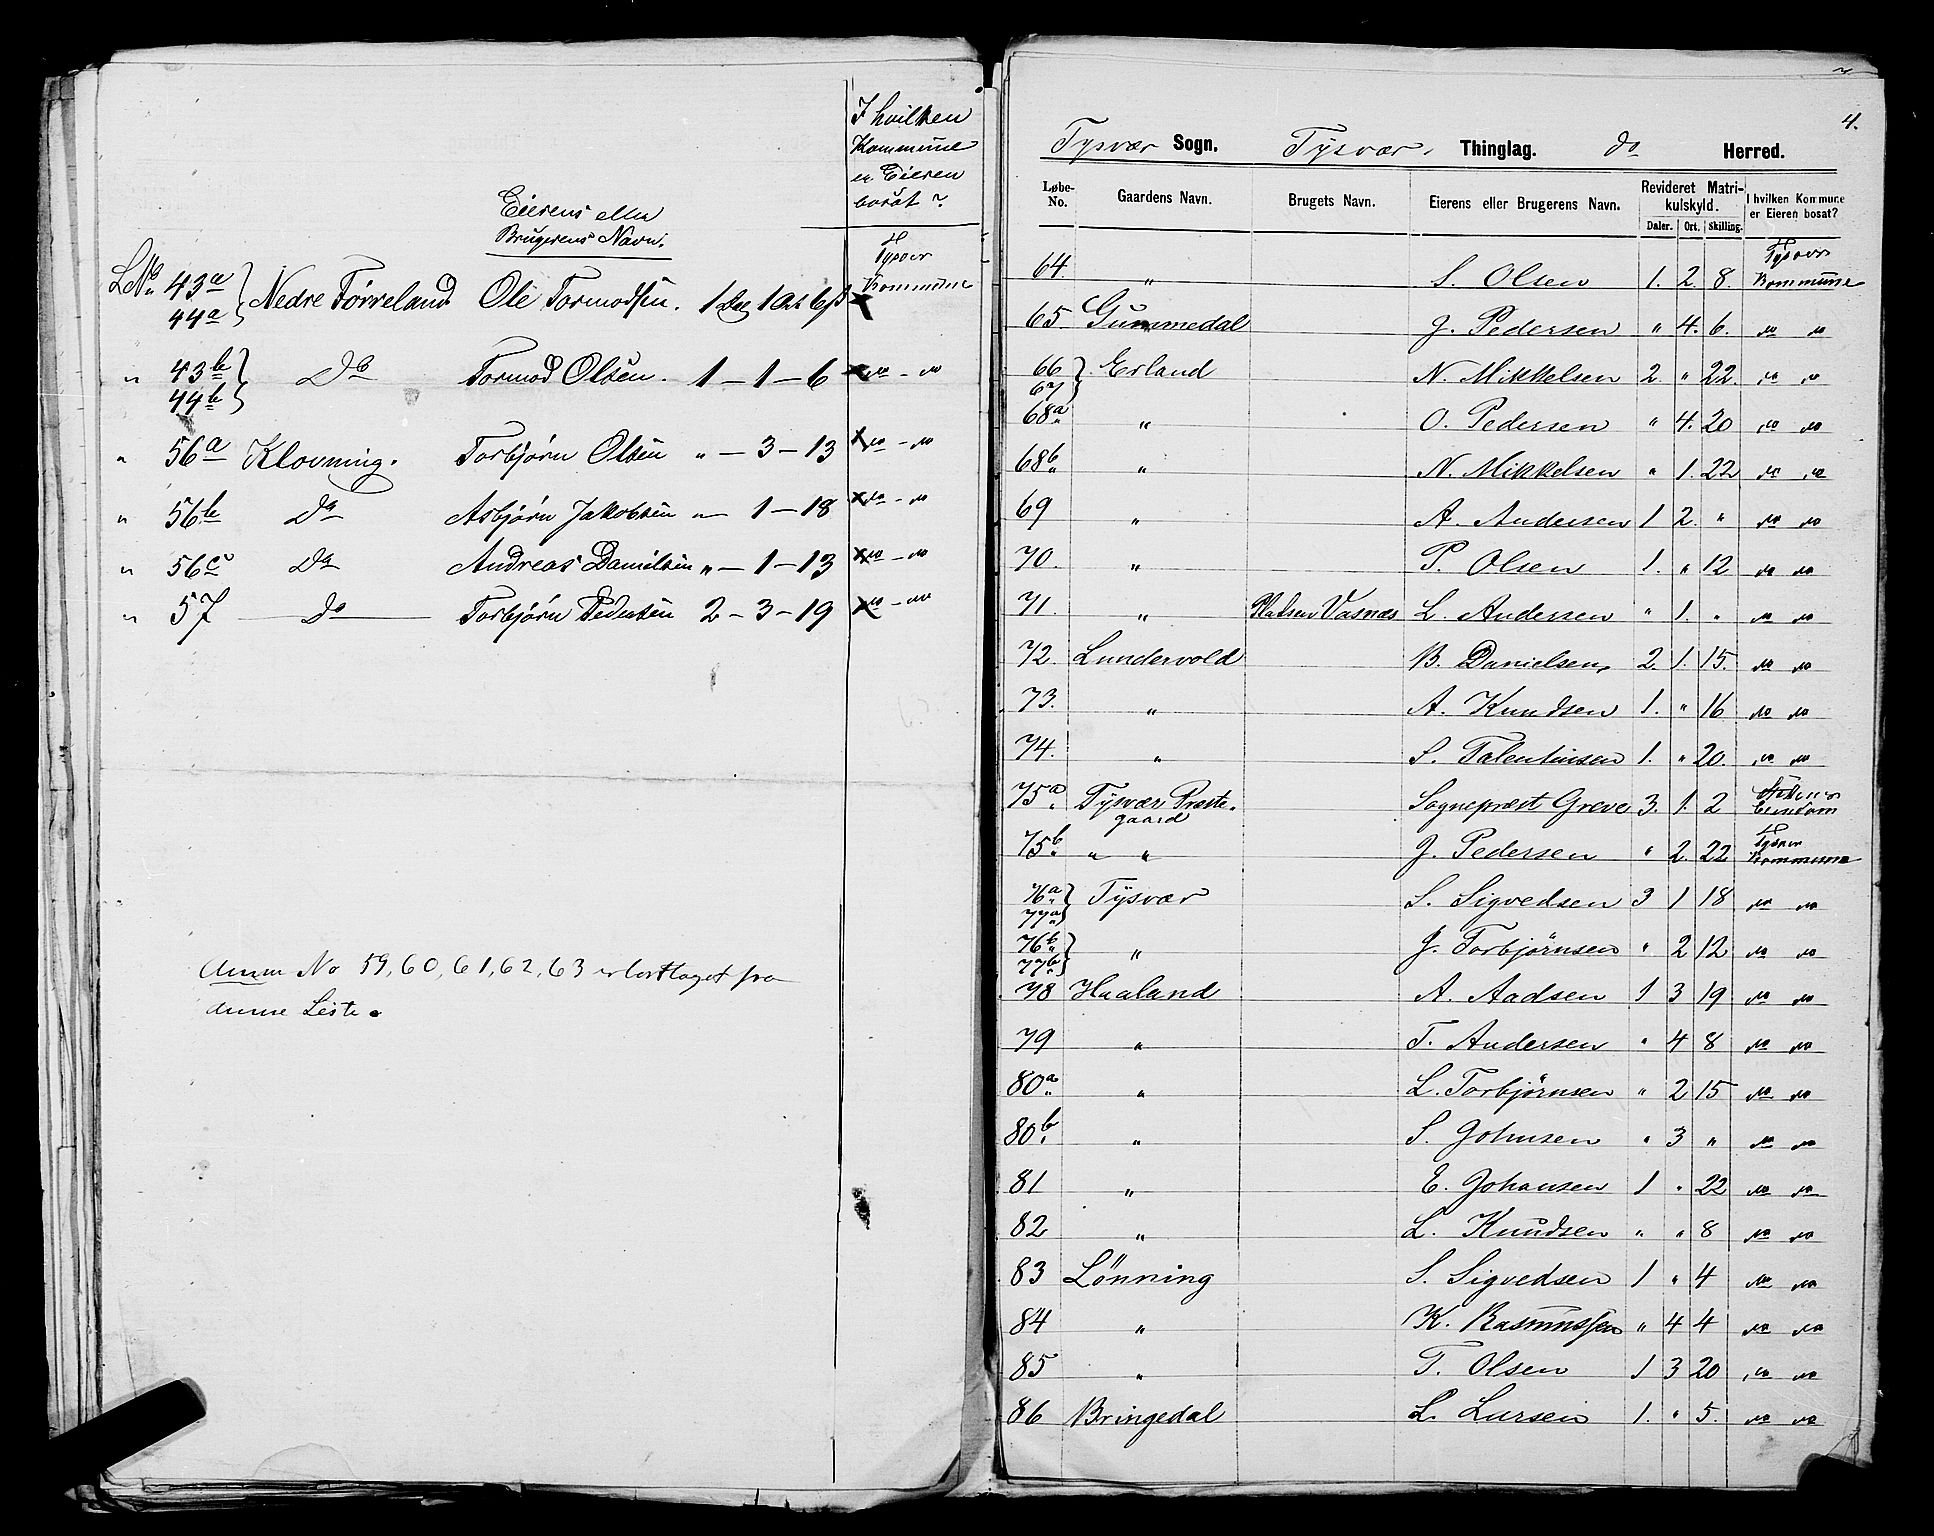 I hvilken
Kommune
er Eieren
bosat?
Eierens eller
Brugerens Navn.
LNo 43a 44a } Nedre Førreland Ole Tormodsen. 1 Dlr 1 Ort 6 β Tysvær Kommune
" 43b 44b } Do Tormod Olsen. 1 – 1 – 6 do – do
" 56a Klovning. Torbjørn Olsen " – 3 – 13 do – do
" 56b Do Asbjørn Jakobsen " – 1 – 18 do – do
" 56c Do Andreas Danielsen " – 1 – 13 do – do
" 57 Do Torbjørn Pedersen 2 – 3 – 19 do – do
Anm No 59, 60, 61, 62, 63 er borttaget fra
denne Liste.
4.
Tysvær Sogn. Tysvær. Thinglag. do Herred.
Løbe-No. Gaardens Navn. Brugets Navn. Eierens eller Brugerens Navn. Revideret Matrikulskyld. I hvilken Kommune er Eieren bosat?
Daler. Ort. Skilling.
64. " S. Olsen 1. 2. 8. Tysvær Kommune
65 Gummedal J. Pedersen " 4. 6. do do
66 67 } Erland N. Mikkelsen 2. " 22. do do
68a " O. Pedersen " 4. 20 do do
68b " N. Mikkelsen " 1. 22 do do
69 " A. Andersen 1 2. " do do
70. " P. Olsen 1. " 12 do do
71. " Pladsen Vasnæs L. Andersen " 1. " do do
72. Lundervold B. Danielsen, 2. 1. 15. do do
73. " A. Knudsen 1. " 16 do do
74. " S. Talentinsen 1. " 20. do do
75a Tysvær Præstegaard Sognepræst Greve 3. 1. 2 Eiendom
75b " " J. Pedersen " 2. 22 Tysvær Kommune
76a 77a } Tysvær S. Sigvedsen 3 1 18 do do
76b 77b } " J. Torbjørnsen " 2 12 do do
78 Haaland A. Aadsen 1 3 19 do do
79 " T. Andersen " 4 8 do do
80a " L. Torbjørnsen " 2 15 do do
80b " S. Johnsen " 3 " do do
81 " E. Johansen 1 " 22 do do
82 " L. Knudsen " " 8 do do
83 Lønning S. Sigvedsen 1 " 4 do do
84 " K. Rasmussen " 4 4 do do
85 " T. Olsen 1 3 20 do do
86 Bringedal L. Larsen 1. " 5. do do